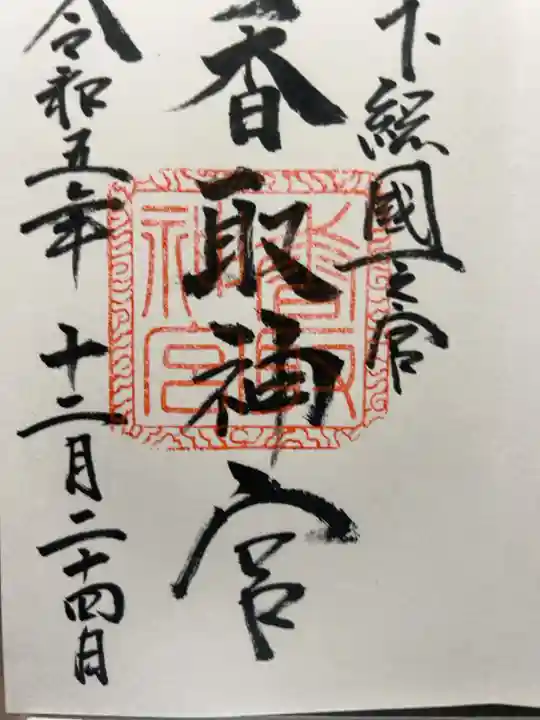 下総國一之宮
香取神宮
令和五年 十二月二十四日
香取神宮